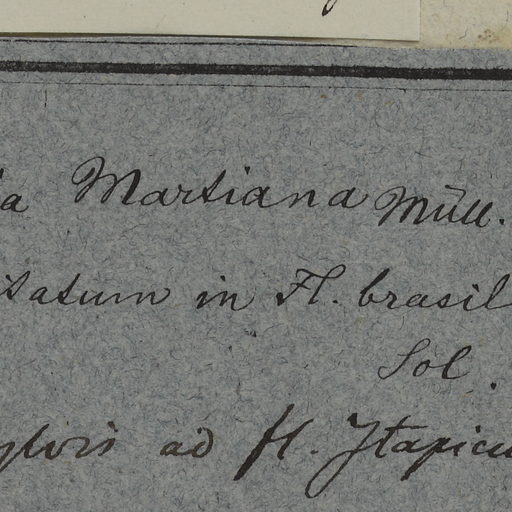 ia Martiana Müll.
itatum in Fl. brasil
Sol.
ylvis ad fl. Itapicu